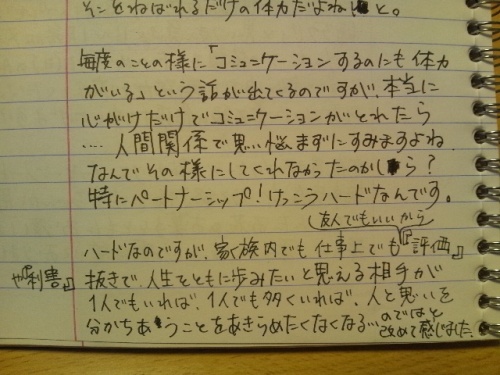 そこをねばれるだけの体力だよねと。
毎度のことの様に「コミュニケーションするのにも体力
がいる」という話が出てくるのですが、本当に
心がけだけでコミュニケーションがとれたら
…人間関係で思い悩まずにすみますよね
なんでその様にしてくれなかったのかしら？
特にパートナーシップ！けっこうハードなんです。
（友人でもいいから
ハードなのですが、家族内でも仕事上でも『評価』
や『利害』抜きで、人生をともに歩みたいと思える相手が
1人でもいれば、1人でも多くいれば、人と思いを
分かちあうことをあきらめたくなくなる…のではと
改めて感じました。